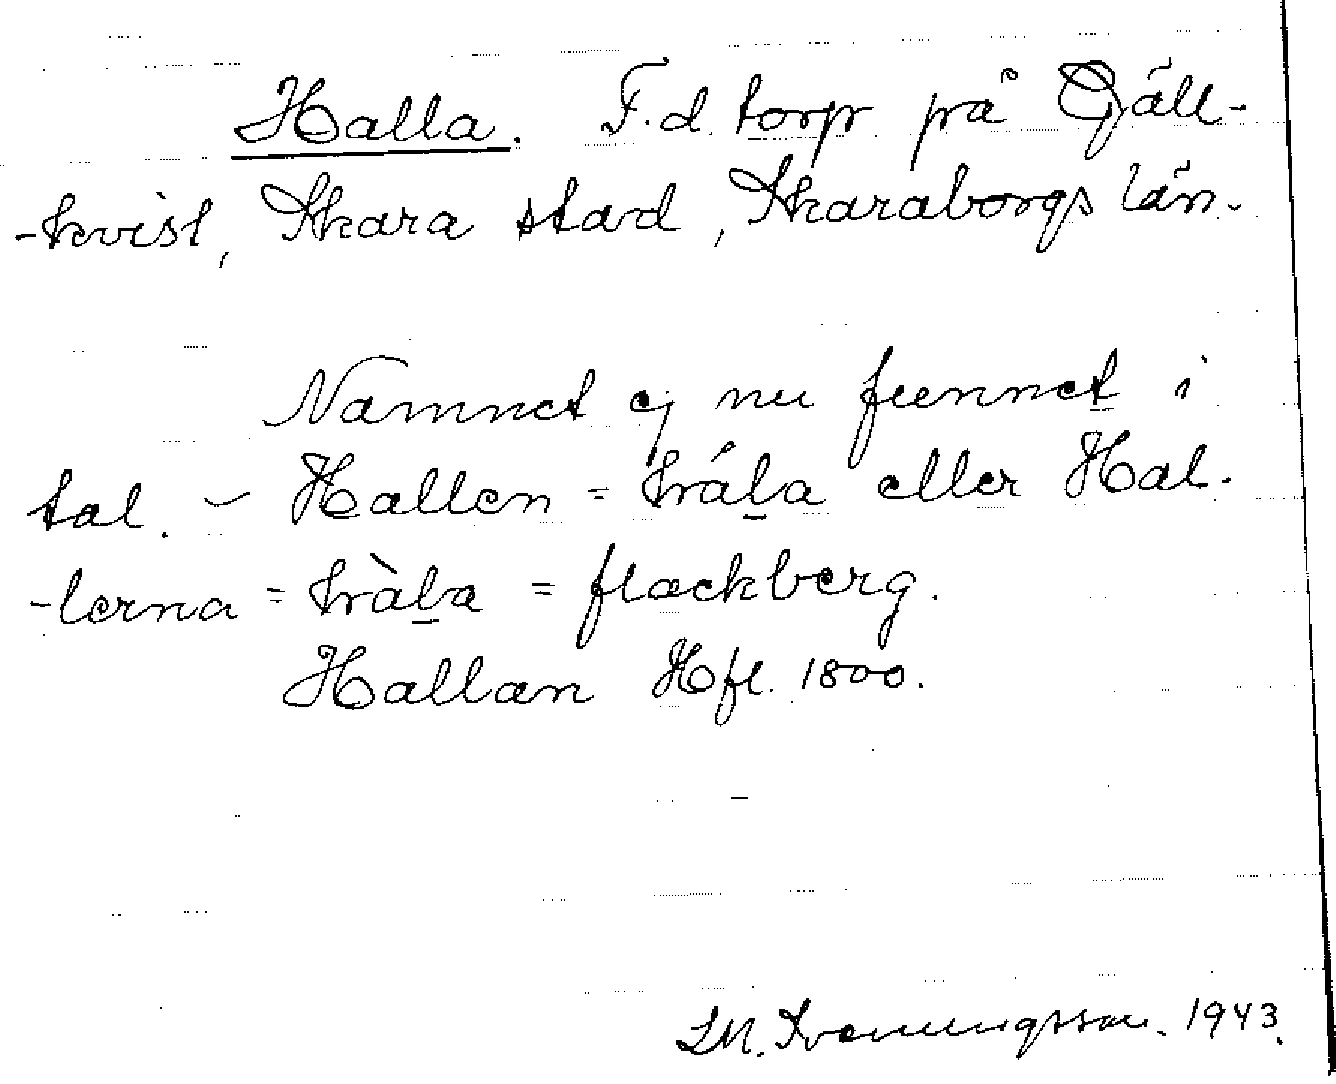 Halla. F.d. torp på Gäll-
-kvist, Skara stad, Skaraborgs län.
Namnet ej nu funnet i
tal. – Hallen = hála eller Hal-
-lerna = hàla = flackberg.
Hallan Hfl. 1800.
1943.